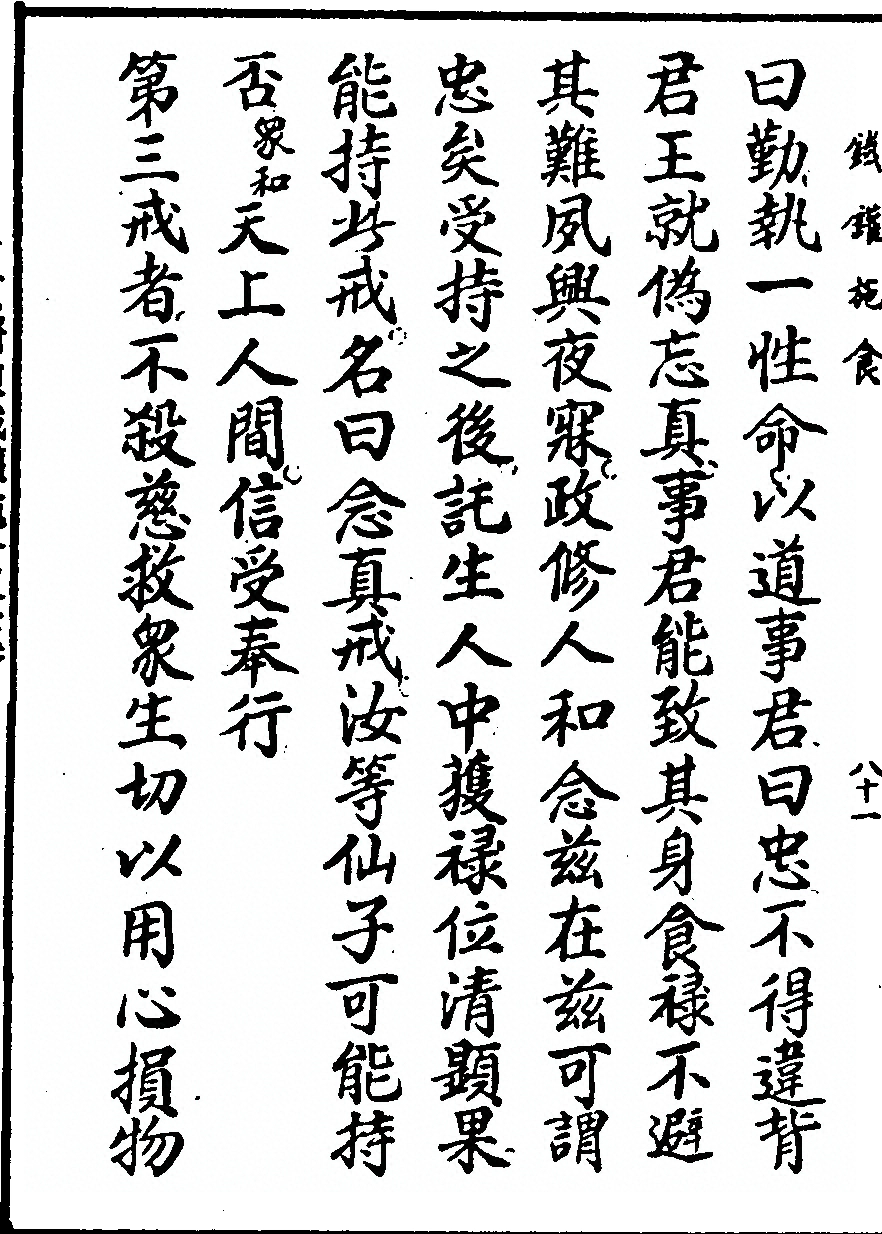 鐵鑵施食
八十一
曰勤執一性命以道事君曰忠不得違背
君王就偽忘真事君能致其身食祿不避
其難夙興夜寐政修人和念兹在兹可謂
忠矣受持之後託生人中獲祿位清顯果
能持此戒名曰念真戒汝等仙子可能持
否眾和天上人間信受奉行
第三戒者不殺慈救眾生切以用心損物